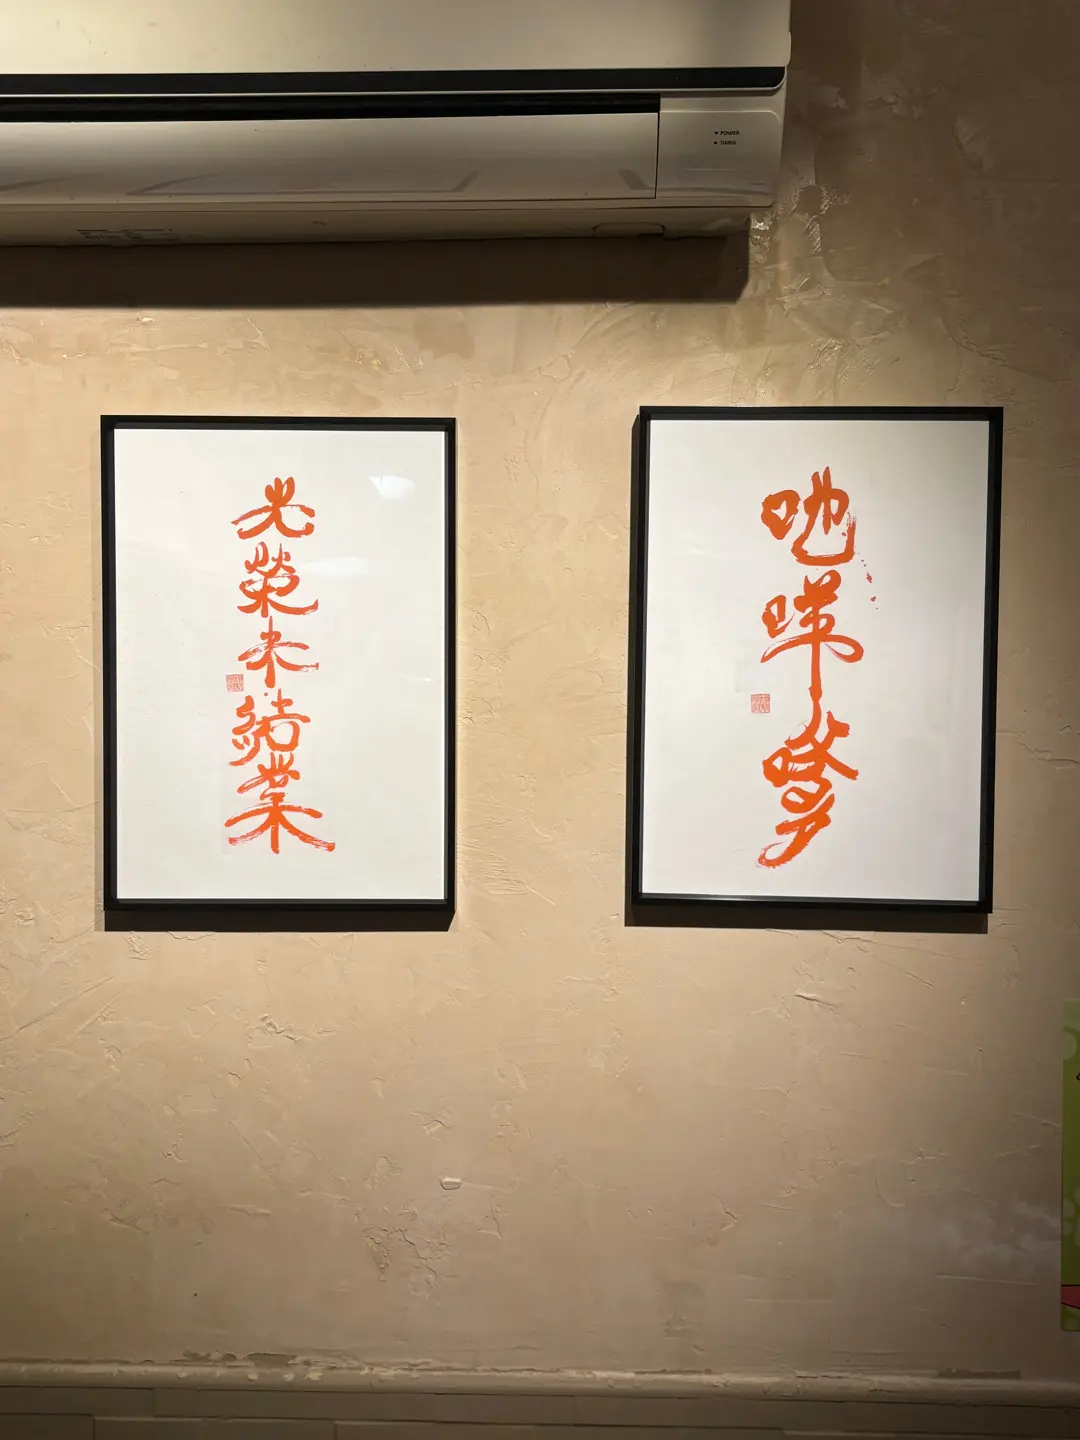 POWER
TIMER
光榮未結業
吔咩嗲